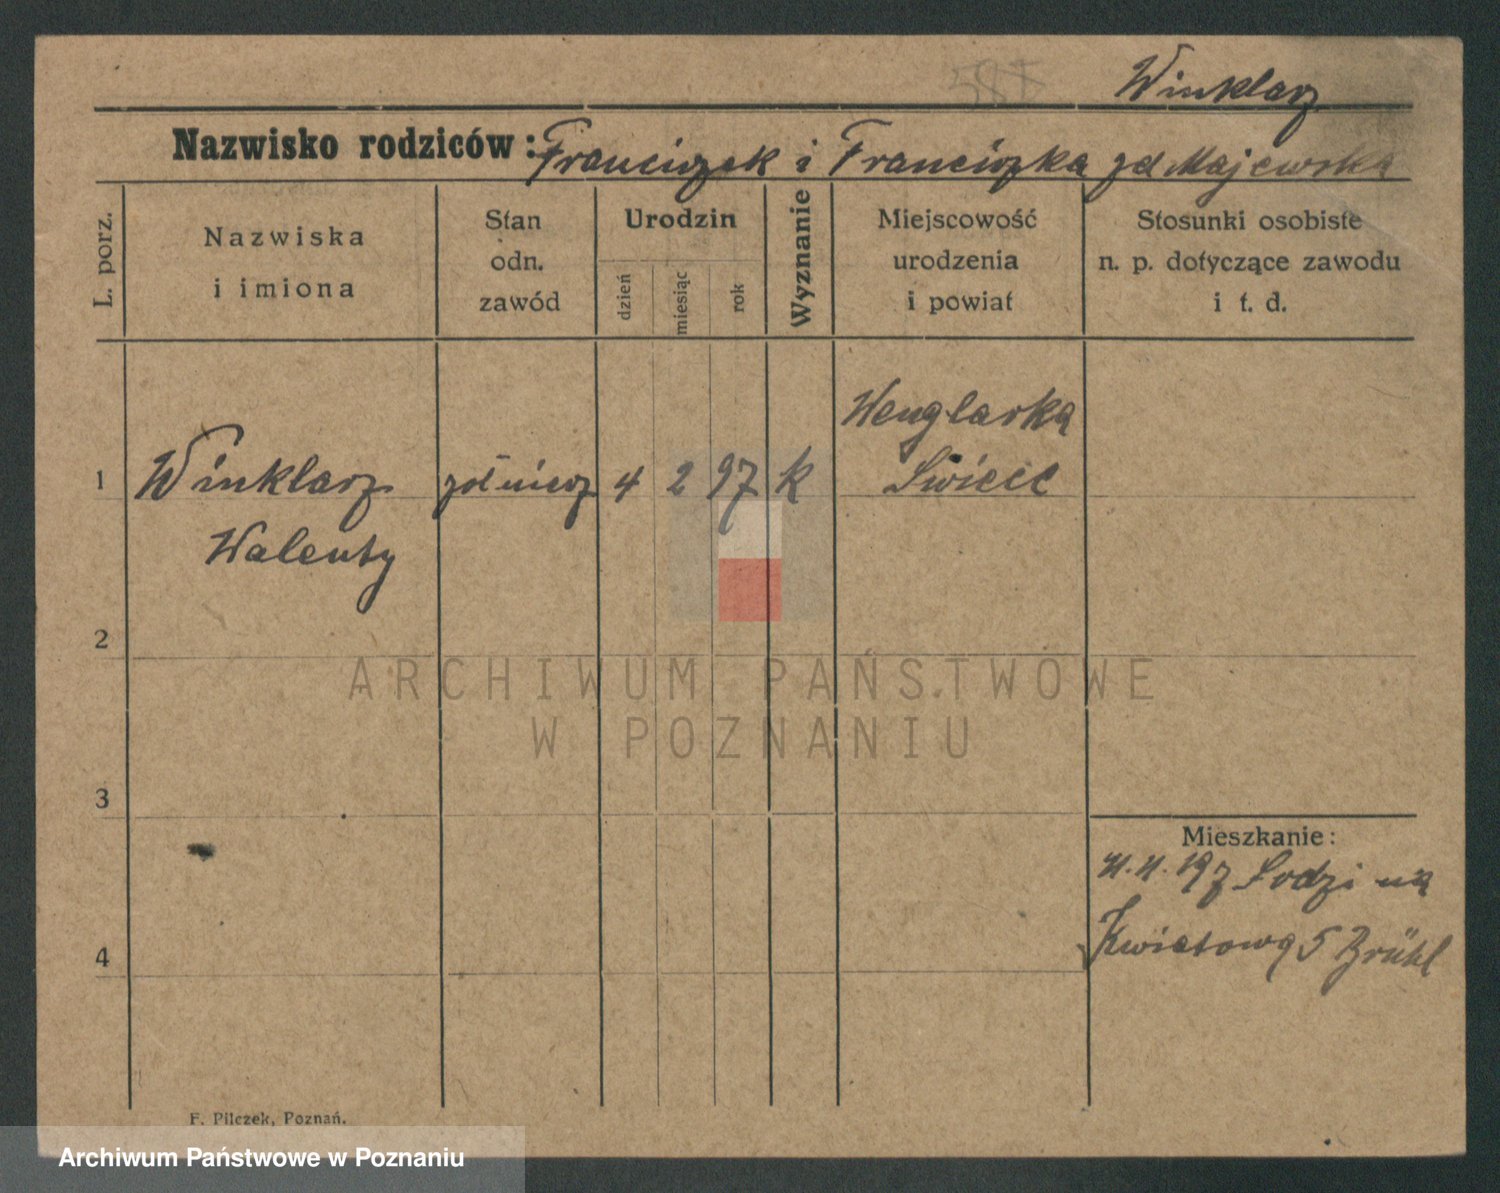 Winklarz
Nazwisko rodziców: Franciszek i Franciszka zd Majewska
L. porz.
Nazwiska
i imiona
Stan
odn.
zawód
Urodzin
dzień
miesiąc
rok
Wyznanie
Miejscowość
urodzenia
i powiat
Stosunki osobiste
n. p. dotyczące zawodu
i t. d.
1
Winklarz
Walenty
żołnierz
4
2
97
k
Wenglarka
Swiece
2
3
4
Mieszkanie:
Lodzi na
Kwiatową 5 Brühl
F. Pilczek, Poznań.
ARCHIWUM PAŃSTWOWE
W POZNANIU
Archiwum Państwowe w Poznaniu